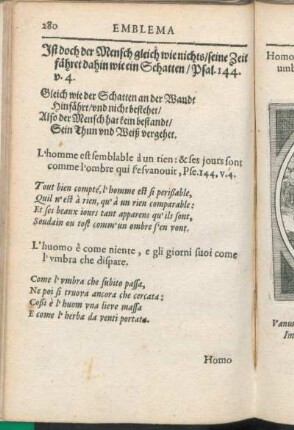 280 EMBLEMA
Ist doch der Mensch gleich wie nichts/seine Zeit
fähret dahin wie ein Schatten/Psal. 144.
v. 4.
Gleich wie der Schatten an der Wandt
Hinfährt/vnd nicht bestehet/
Also der Mensch hat kein bestandt/
Sein Thun vnd Weiß vergehet.
L'homme est semblable à un rien: & ses jours sont
comme l'ombre qui s'esvanouit, Pse. 144, v. 4.
Tout bien compté, l'homme est si perissable,
Quil n'est à rien, qu'à un rien comparable:
Et ses beaux iours tant apparens qu'ils sont,
Soudain ou tost comm'un ombre s'en vont.
L'huomo è come niente, e gli giorni suoi come
l'vmbra che dispare.
Come l'vmbra che subito passa,
Ne poi si truova ancora che cercata;
Cosi è l'huom vna lieve massa
E come l'herba da venti portata.
Homo
Homo
umb
Vanu
In